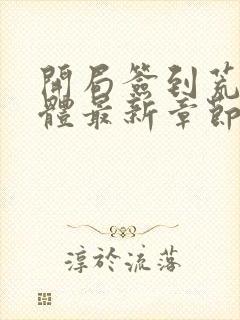 開局簽到荒
體最新章節
淳於流落